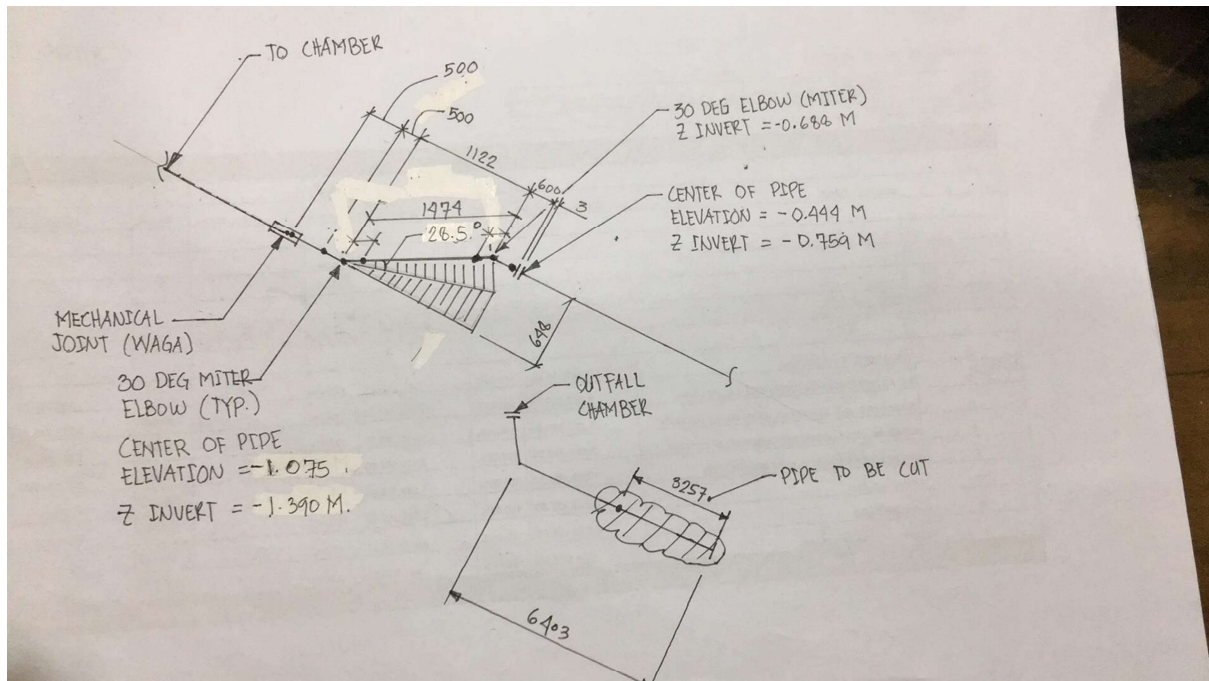 TO CHAMBER
500
500
1122
600
3
1474
28.5°
30 DEG ELBOW (MITER)
Z INVERT = -0.688 M
CENTER OF PIPE
ELEVATION = -0.444 M
Z INVERT = -0.759 M
MECHANICAL
JOINT (WAGA)
648
30 DEG MITER
ELBOW (TYP.)
CENTER OF PIPE
ELEVATION = -1.075
Z INVERT = -1.390 M.
OUTFALL
CHAMBER
3257
PIPE TO BE CUT
6403